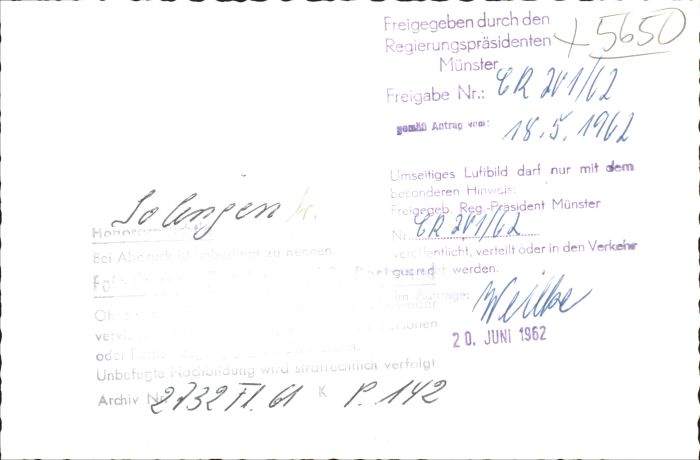 Freigegeben durch den
Regierungspräsidenten
Münster
+ 5650
Freigabe Nr.: CR 201/62
gemäß Antrag vom: 18.5.1962
Umseitiges Luftbild darf nur mit dem
besonderen Hinweis:
Freigegeb. Reg.-Präsident Münster
Nr. CR 201/62
veröffentlicht, verteilt oder in den Verkehr
werden.
Im Auftrage:
20. JUNI 1962
Solingen
Bei Abdruck ist unbedingt zu nennen
Foto
Ohne
oder
Unbefugte Nachbildung wird strafrechtlich verfolgt
Archiv Nr. 2732 Fl. 61 K P. 142